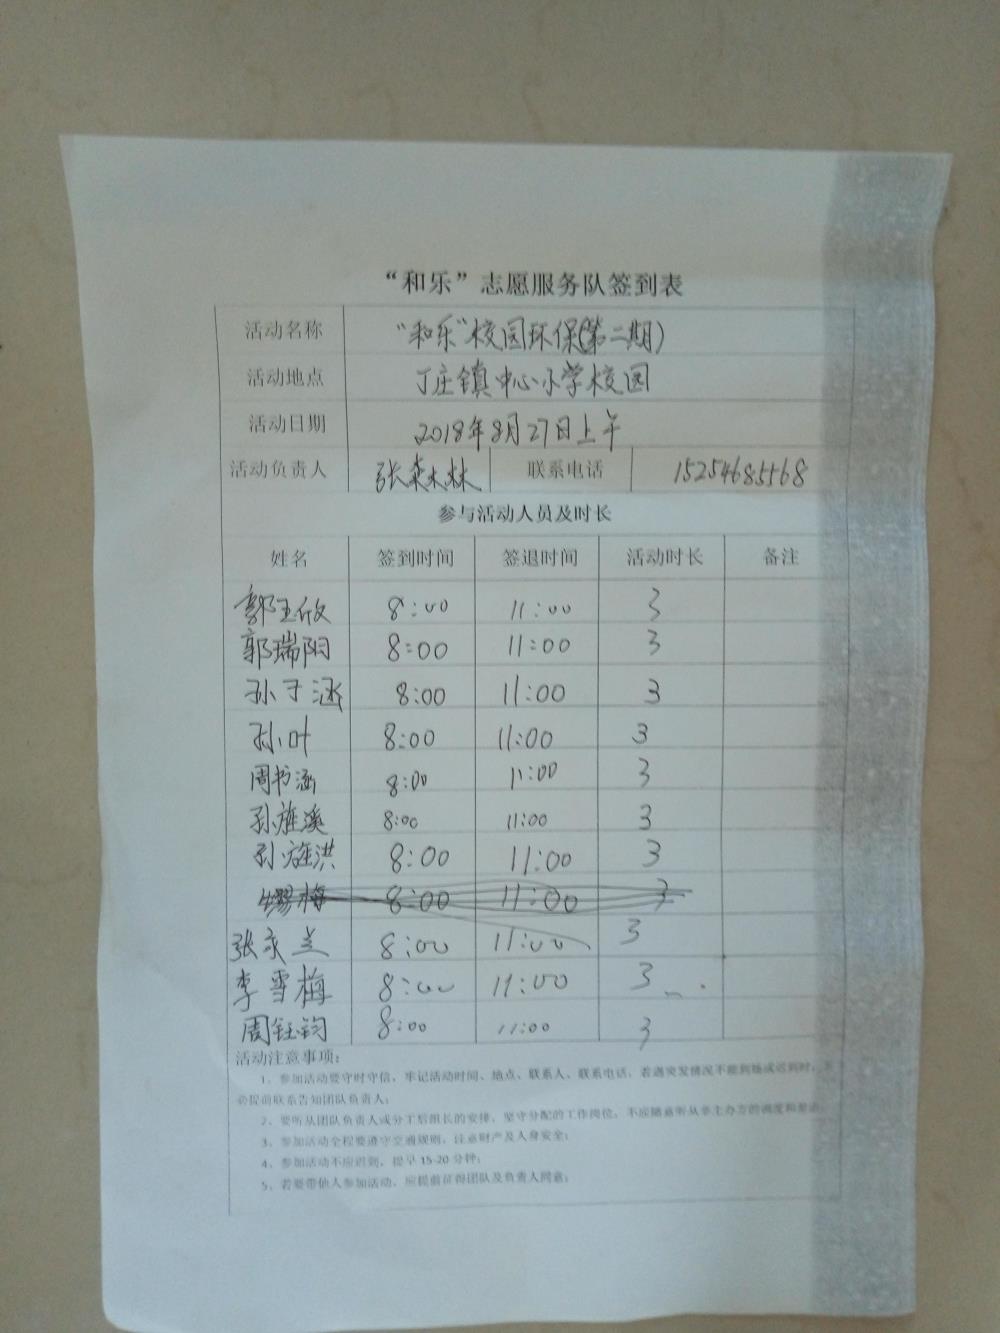 “和乐”志愿服务队签到表
活动名称 “和乐”校园环保(第二期)
活动地点 丁庄镇中心小学校园
活动日期 2018年8月27日上午
活动负责人 张森林 联系电话 15254685568
参与活动人员及时长
姓名 签到时间 签退时间 活动时长 备注
郭玉欣 8:00 11:00 3
郭瑞阳 8:00 11:00 3
孙子涵 8:00 11:00 3
孙叶 8:00 11:00 3
周书涵 8:00 11:00 3
孙旌溪 8:00 11:00 3
孙旌洪 8:00 11:00 3
梅 8:00 11:00 3
张家兰 8:00 11:00 3
李雪梅 8:00 11:00 3
周钰钧 8:00 11:00 3
活动注意事项：
1、参加活动要守时守信，牢记活动时间、地点、联系人、联系电话，若遇突发情况不能到场或迟到时，
必提前联系告知团队负责人；
2、要听从团队负责人或分工后组长的安排，坚守分配的工作岗位，不应随意听从非主办方的调度和差遣；
3、参加活动全程要遵守交通规则，注意财产及人身安全；
4、参加活动不应迟到，提早 15-20 分钟；
5、若要带他人参加活动，应提前征得团队及负责人同意；